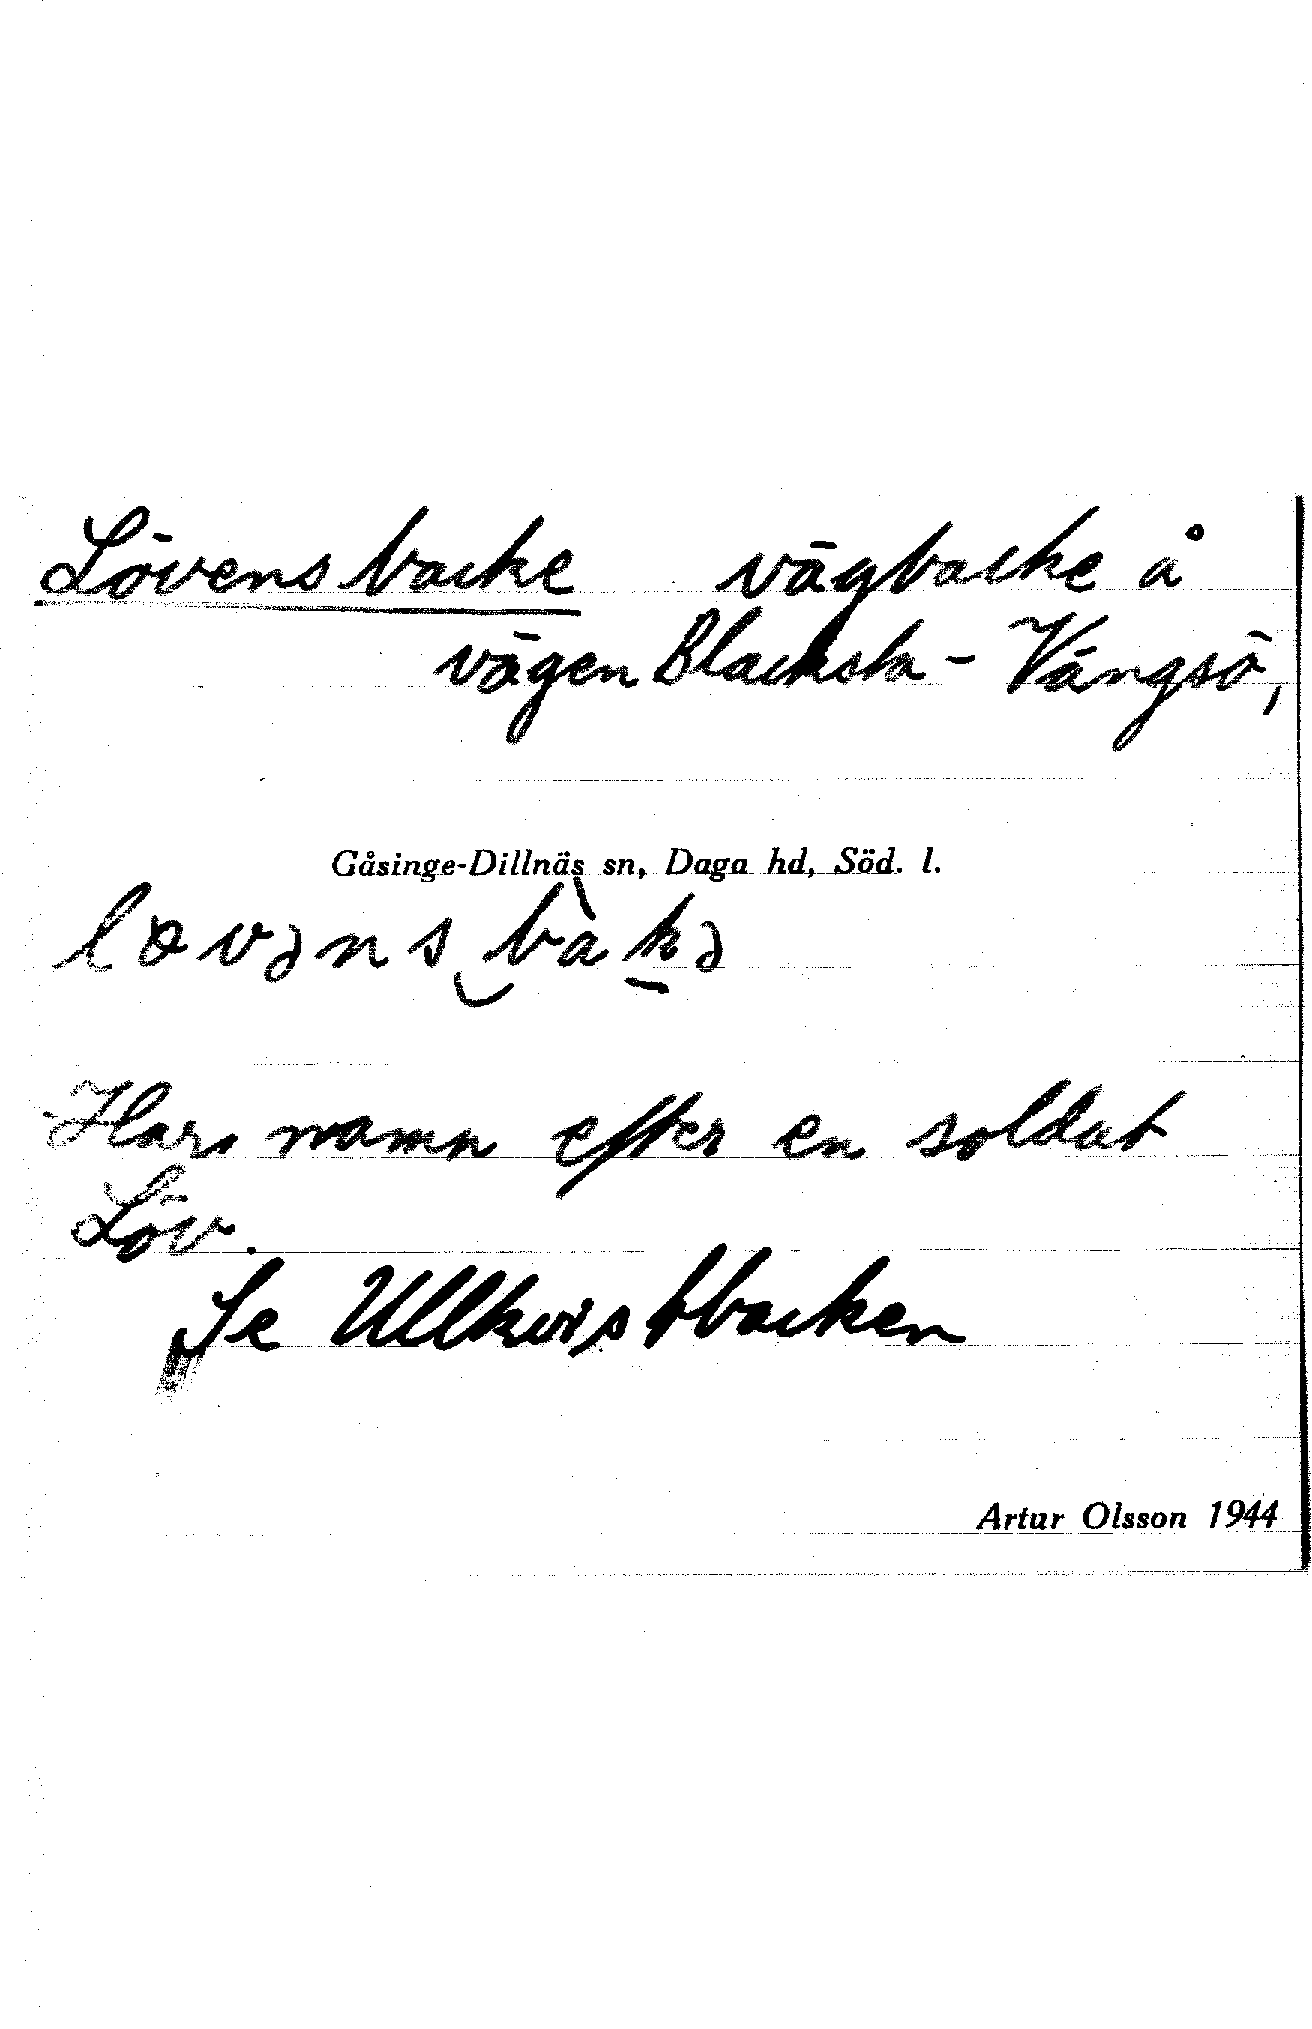 Lövens backe vägbacke å
vägen Blacksta - Vängsö,
Gåsinge-Dillnäs sn, Daga hd, Söd. l.
løvəns bàkə
Har namn efter en soldat
Löv.
Se Ullkvistbacken
Artur Olsson 1944